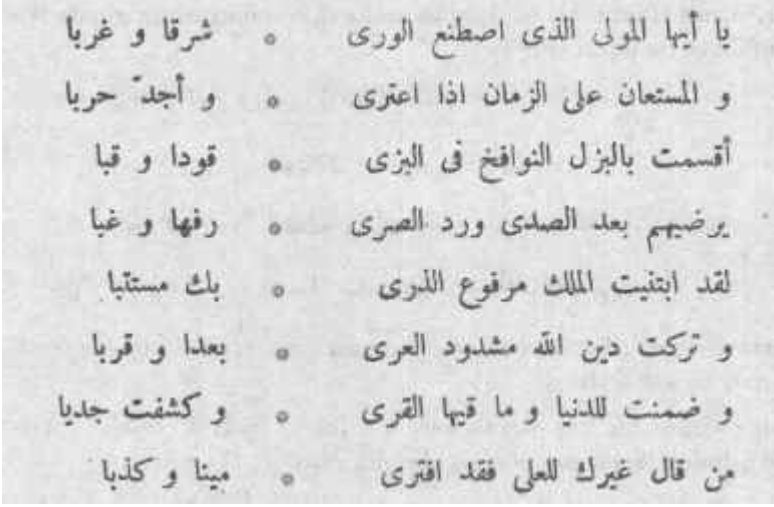 يا أيها المولى الذى اصطنع الورى ° شرقا و غربا
و المستعان على الزمان اذا اعترى ° و أجدّ حربا
أقسمت بالبزل النوافخ فى البزى ° قودا و قبا
يرضيهم بعد الصدى ورد الصرى ° رفها و غبا
لقد ابتنيت الملك مرفوع الذرى ° بك مستتبا
و تركت دين الله مشدود العرى ° بعدا و قربا
و ضمنت للدنيا و ما قيها القرى ° و كشفت جديا
من قال غيرك للعلى فقد افترى ° مينا و كذبا